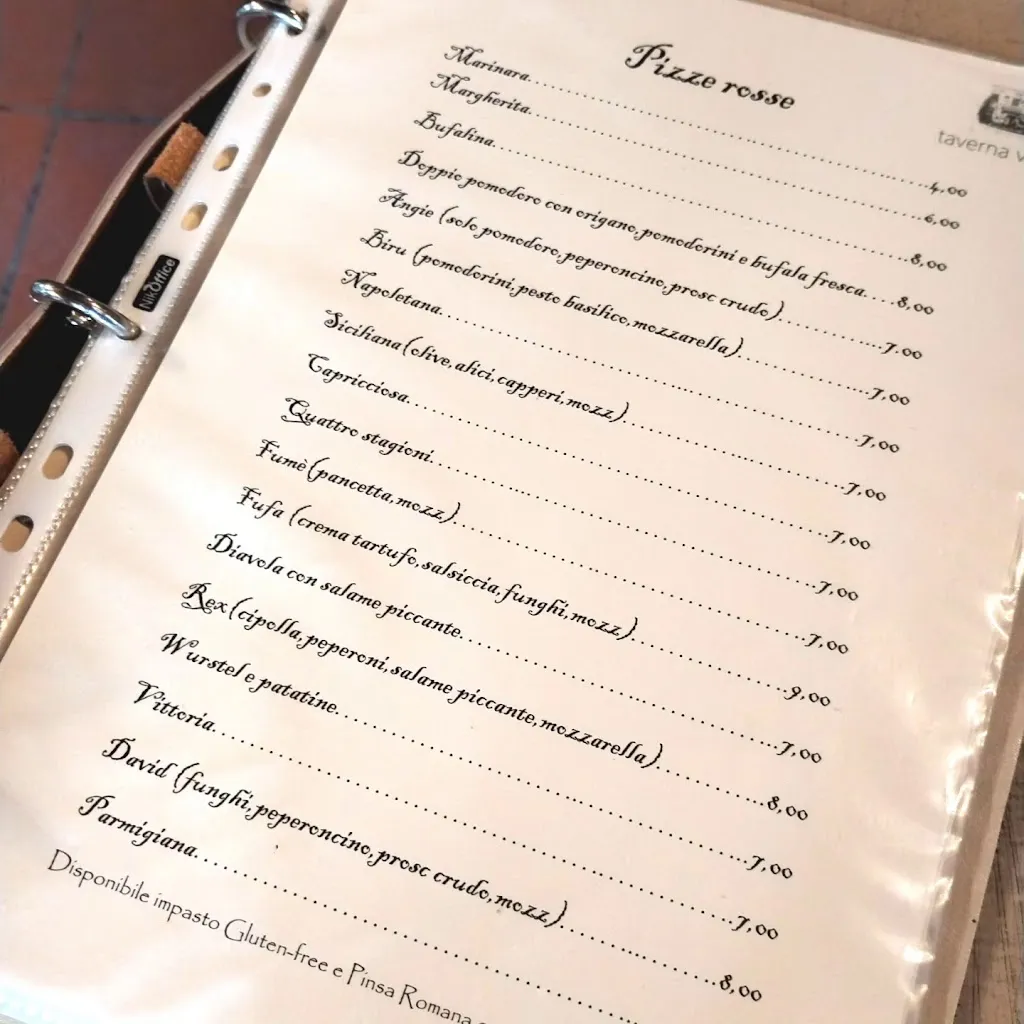 Pizze rosse
taverna v
Marinara..........4,00
Margherita..........6,00
Bufalina..........8,00
Doppio pomodoro con origano,pomodorini e bufala fresca....8,00
Angie (solo pomodoro,peperoncino,prosc crudo)..........7.00
Biru (pomodorini,pesto basilico,mozzarella)..........7,00
Napoletana..........7,00
Siciliana(olive,alici,capperi,mozz)..........7,00
Capricciosa..........7,00
Quattro stagioni..........7,00
Fumè(pancetta,mozz)..........7,00
Fufa (crema tartufo,salsiccia,funghi,mozz)..........9,00
Diavola con salame piccante..........7,00
Rex(cipolla,peperoni,salame piccante,mozzarella)..........8,00
Wurstel e patatine..........7,00
Vittoria..........7,00
David (funghi,peperoncino,prosc crudo,mozz)..........8,00
Parmigiana..........
Disponibile impasto Gluten-free e Pinsa Romana
NikOffice